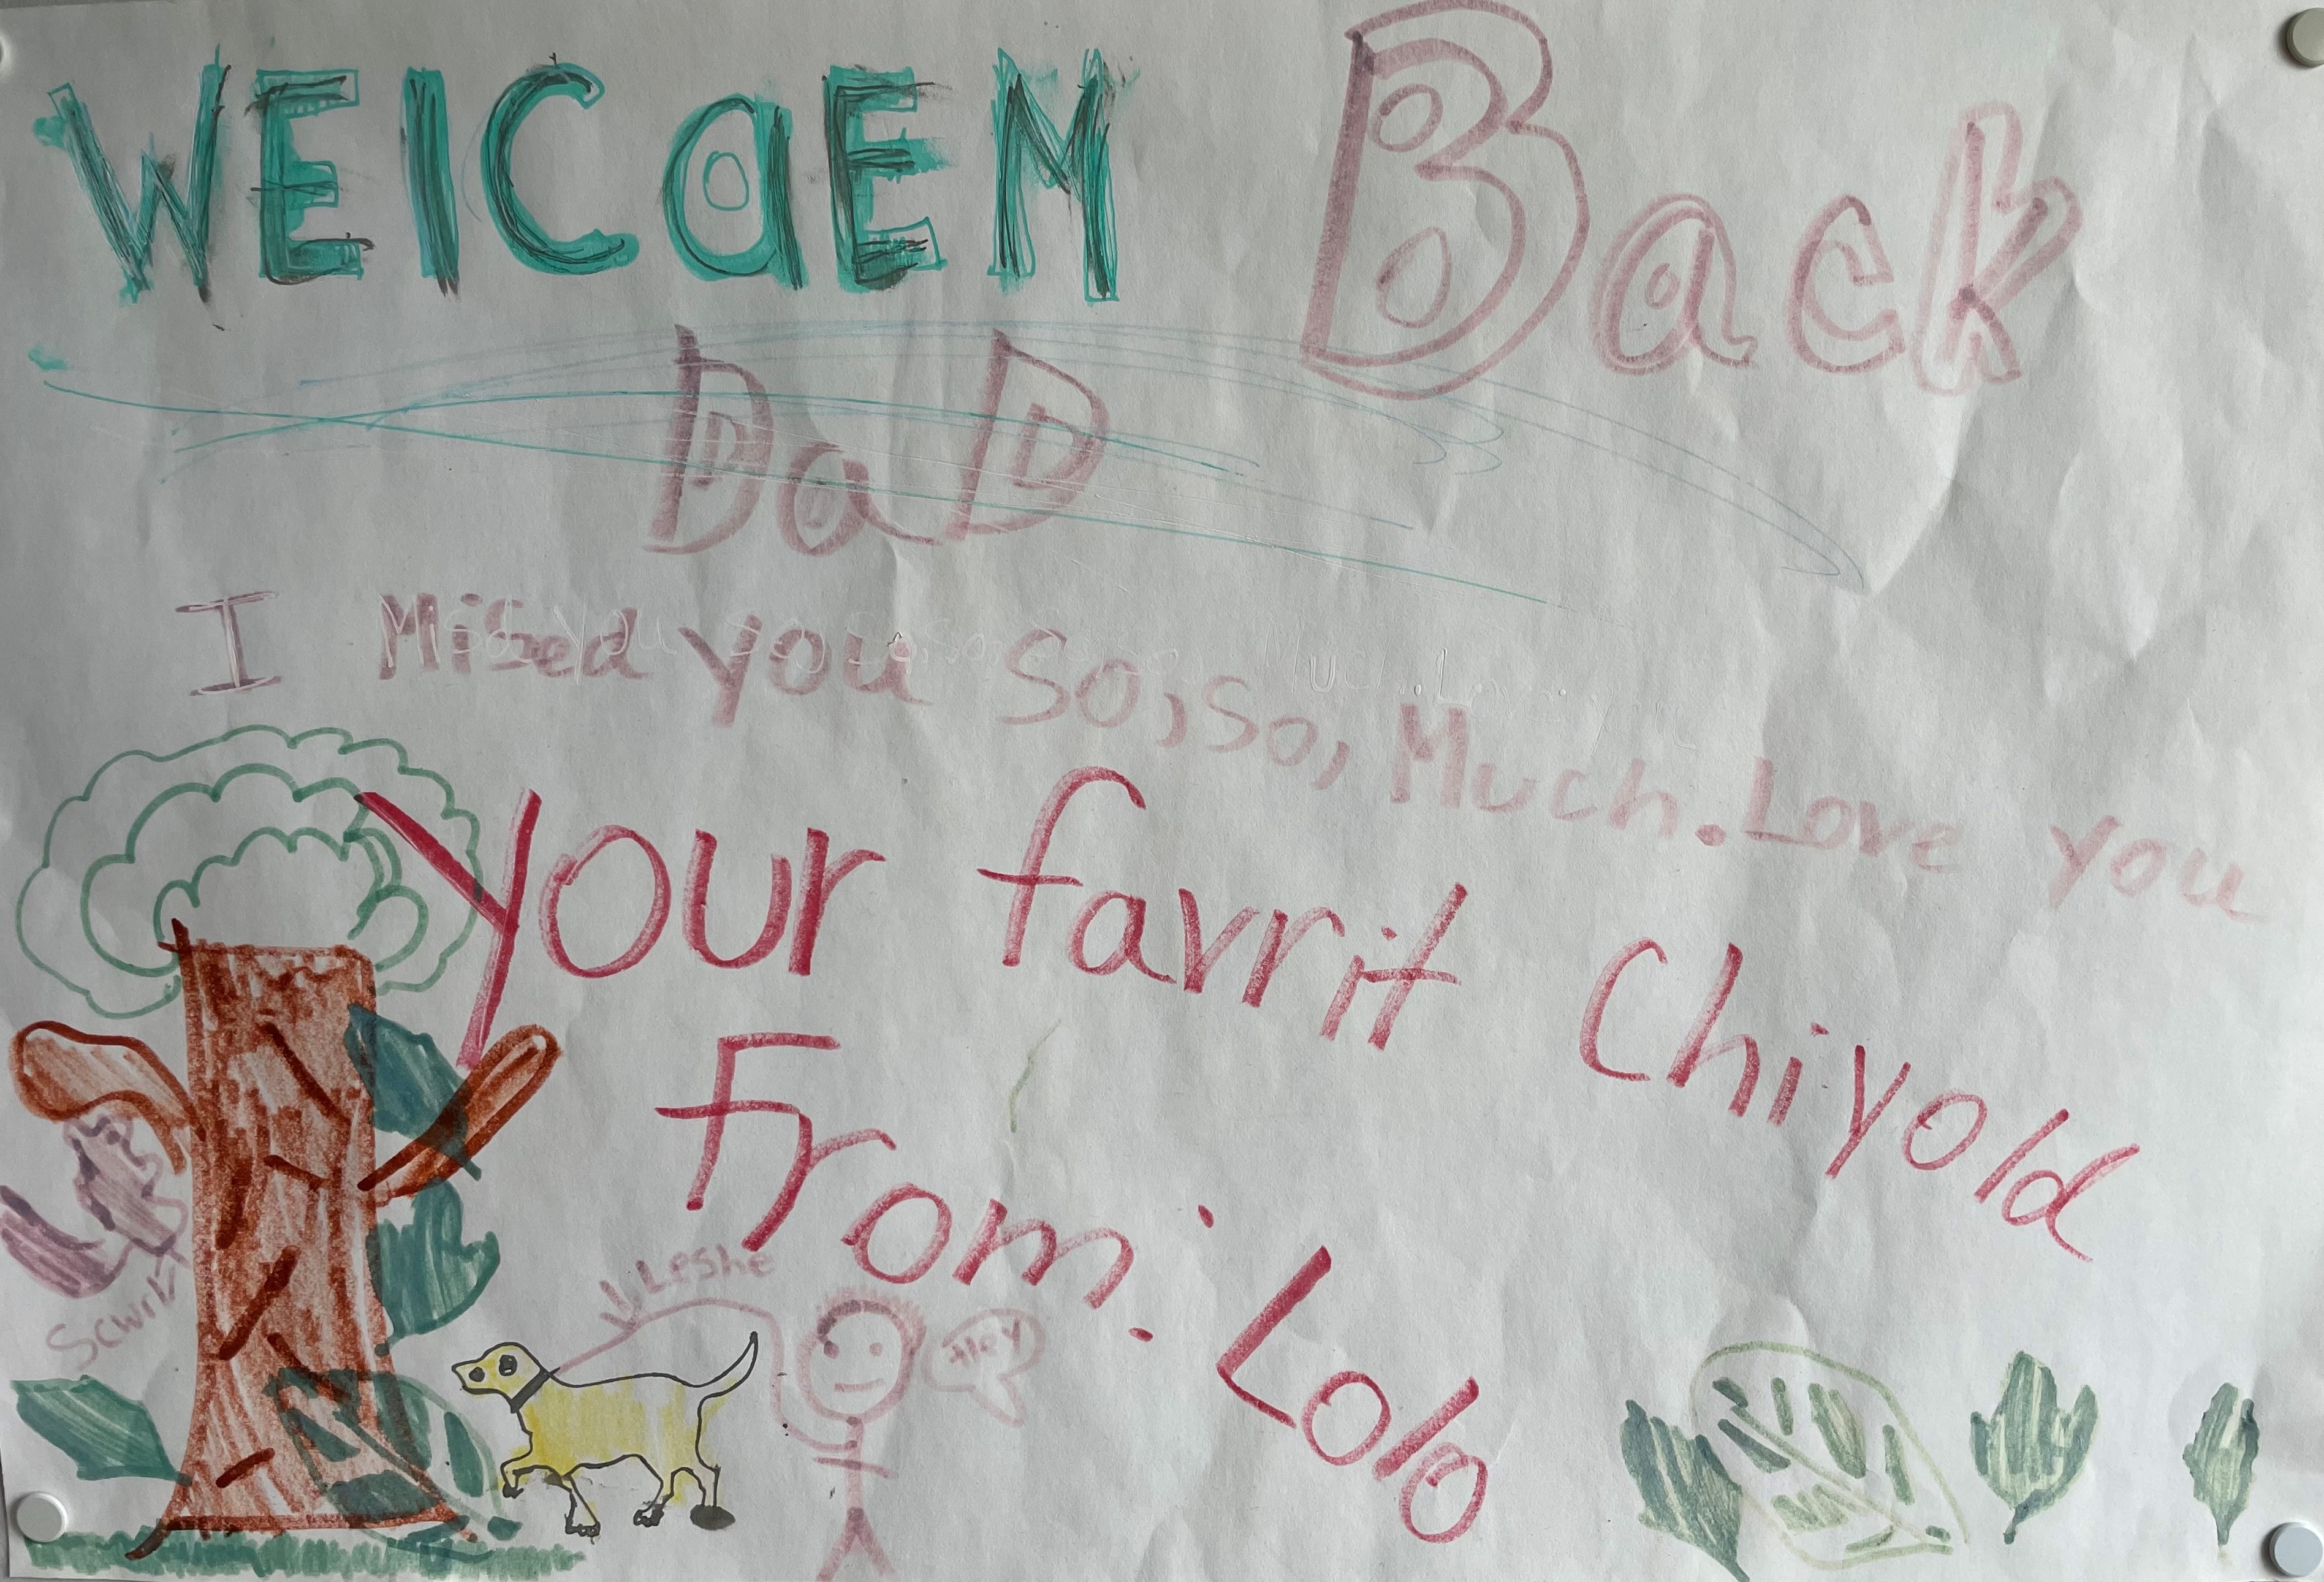 WElCaEM Back
DaD
I Missed you So, So, Much. Love you
your favrit Chiyold
From: Lolo
Leshe
Hey